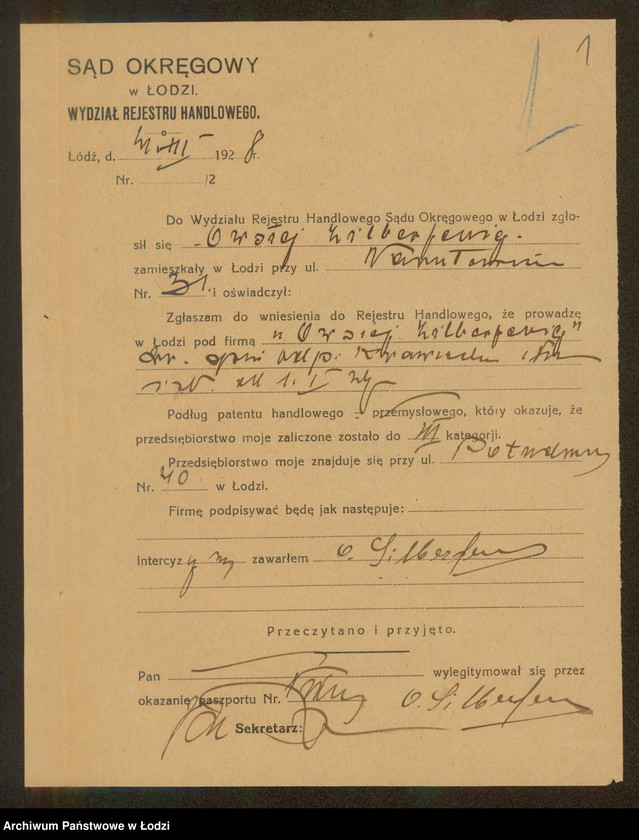 1
SĄD OKRĘGOWY
w ŁODZI.
WYDZIAŁ REJESTRU HANDLOWEGO.
Łódź, d. 1928 r.
Nr. /2
Do Wydziału Rejestru Handlowego Sądu Okręgowego w Łodzi zgło-
sił się Owsiej Zilberfenig.
zamieszkały w Łodzi przy ul.
Nr. 31 i oświadczył:
Zgłaszam do wniesienia do Rejestru Handlowego, że prowadzę
w Łodzi pod firmą „Owsiej Zilberfenig"
Podług patentu handlowego – przemysłowego, który okazuje, że
przedsiębiorstwo moje zaliczone zostało do III kategorji.
Przedsiębiorstwo moje znajduje się przy ul.
Nr. 40 w Łodzi.
Firmę podpisywać będę jak następuje:
Intercyzy nie zawarłem O. Silberfenig
Przeczytano i przyjęto.
Pan wylegitymował się przez
okazanie paszportu Nr. O. Silberfenig
Sekretarz:
Archiwum Państwowe w Łodzi